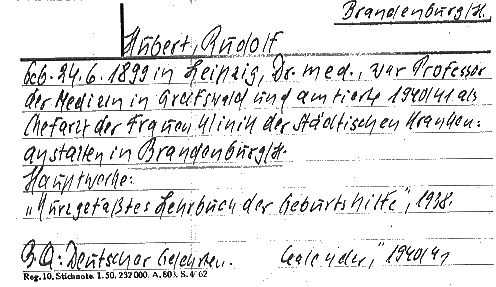 Brandenburg/H.
Hubert, Rudolf
Geb. 24.6.1899 in Leipzig, Dr. med., war Professor
der Medizin in Greifswald und amtierte 1940/41 als
Chefarzt der Frauenklinik der Städtischen Kranken=
anstalten in Brandenburg/H.
Hauptwerke:
„Kurzgefaßtes Lehrbuch der Geburtshilfe", 1938.
B.Q.: Deutscher Gelehrten. Kalender," 1940/41
Reg. 10. Stichnote. 1.50. 232 000. A. 803. S. 4 62